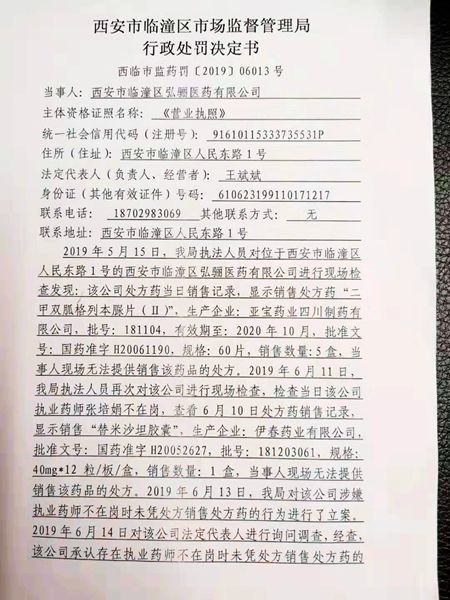 西安市临潼区市场监督管理局
行政处罚决定书
西临市监药罚〔2019〕06013号
当事人：西安市临潼区弘骊医药有限公司
主体资格证照名称：《营业执照》
统一社会信用代码（注册号）：91610115333735531P
住所（住址）：西安市临潼区人民东路1号
法定代表人（负责人、经营者）：王斌斌
身份证（其他有效证件）号码：610623199110171217
联系电话：18702983069 其他联系方式：无
联系地址：西安市临潼区人民东路1号
2019年5月15日，我局执法人员对位于西安市临潼区
人民东路1号的西安市临潼区弘骊医药有限公司进行现场检
查发现：该公司处方药当日销售记录，显示销售处方药“二
甲双胍格列本脲片（Ⅱ）”，生产企业：亚宝药业四川制药有
限公司，批号：181104，有效期至：2020年10月，批准文
号：国药准字H20061190，规格：60片，销售数量：5盒，当
事人现场无法提供销售该药品的处方。2019年6月11日，
我局执法人员再次对该公司进行现场检查，检查当日该公司
执业药师张培娟不在岗，查看6月10日处方药销售记录，
显示销售“替米沙坦胶囊”，生产企业：伊春药业有限公司，
批准文号：国药准字H20052627，批号：181203061，规格：
40mg*12粒/板/盒，销售数量：1盒，当事人现场无法提供
销售该药品的处方。2019年6月13日，我局对该公司涉嫌
执业药师不在岗时未凭处方销售处方药的行为进行了立案。
2019年6月14日对该公司法定代表人进行询问调查，经查，
该公司承认存在执业药师不在岗时未凭处方销售处方药的